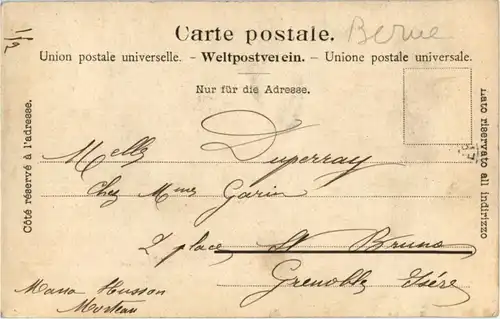 1/2
Carte postale.
Berne
Union postale universelle. - Weltpostverein. - Unione postale universale.
Nur für die Adresse.
Côté réservé à l'adresse.
Lato riservato all indirizzo
Melle Duperray
Chez Mme Garin
2 place St Bruno
Grenoble Isère
Husson
Morteau